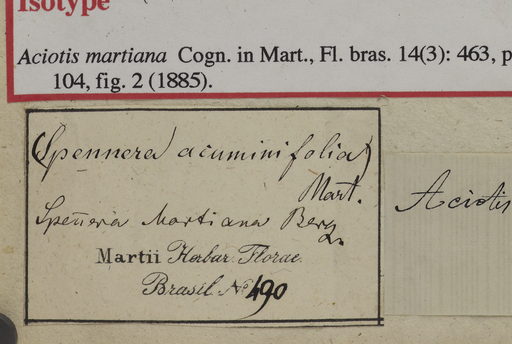 Isotype
Aciotis martiana Cogn. in Mart., Fl. bras. 14(3): 463, p
104, fig. 2 (1885).
(Spennera) acuminifolia)
Mart.
Speñera Martiana Berg.
Martii Herbar. Florae
Brasil. No 490
Aciotis